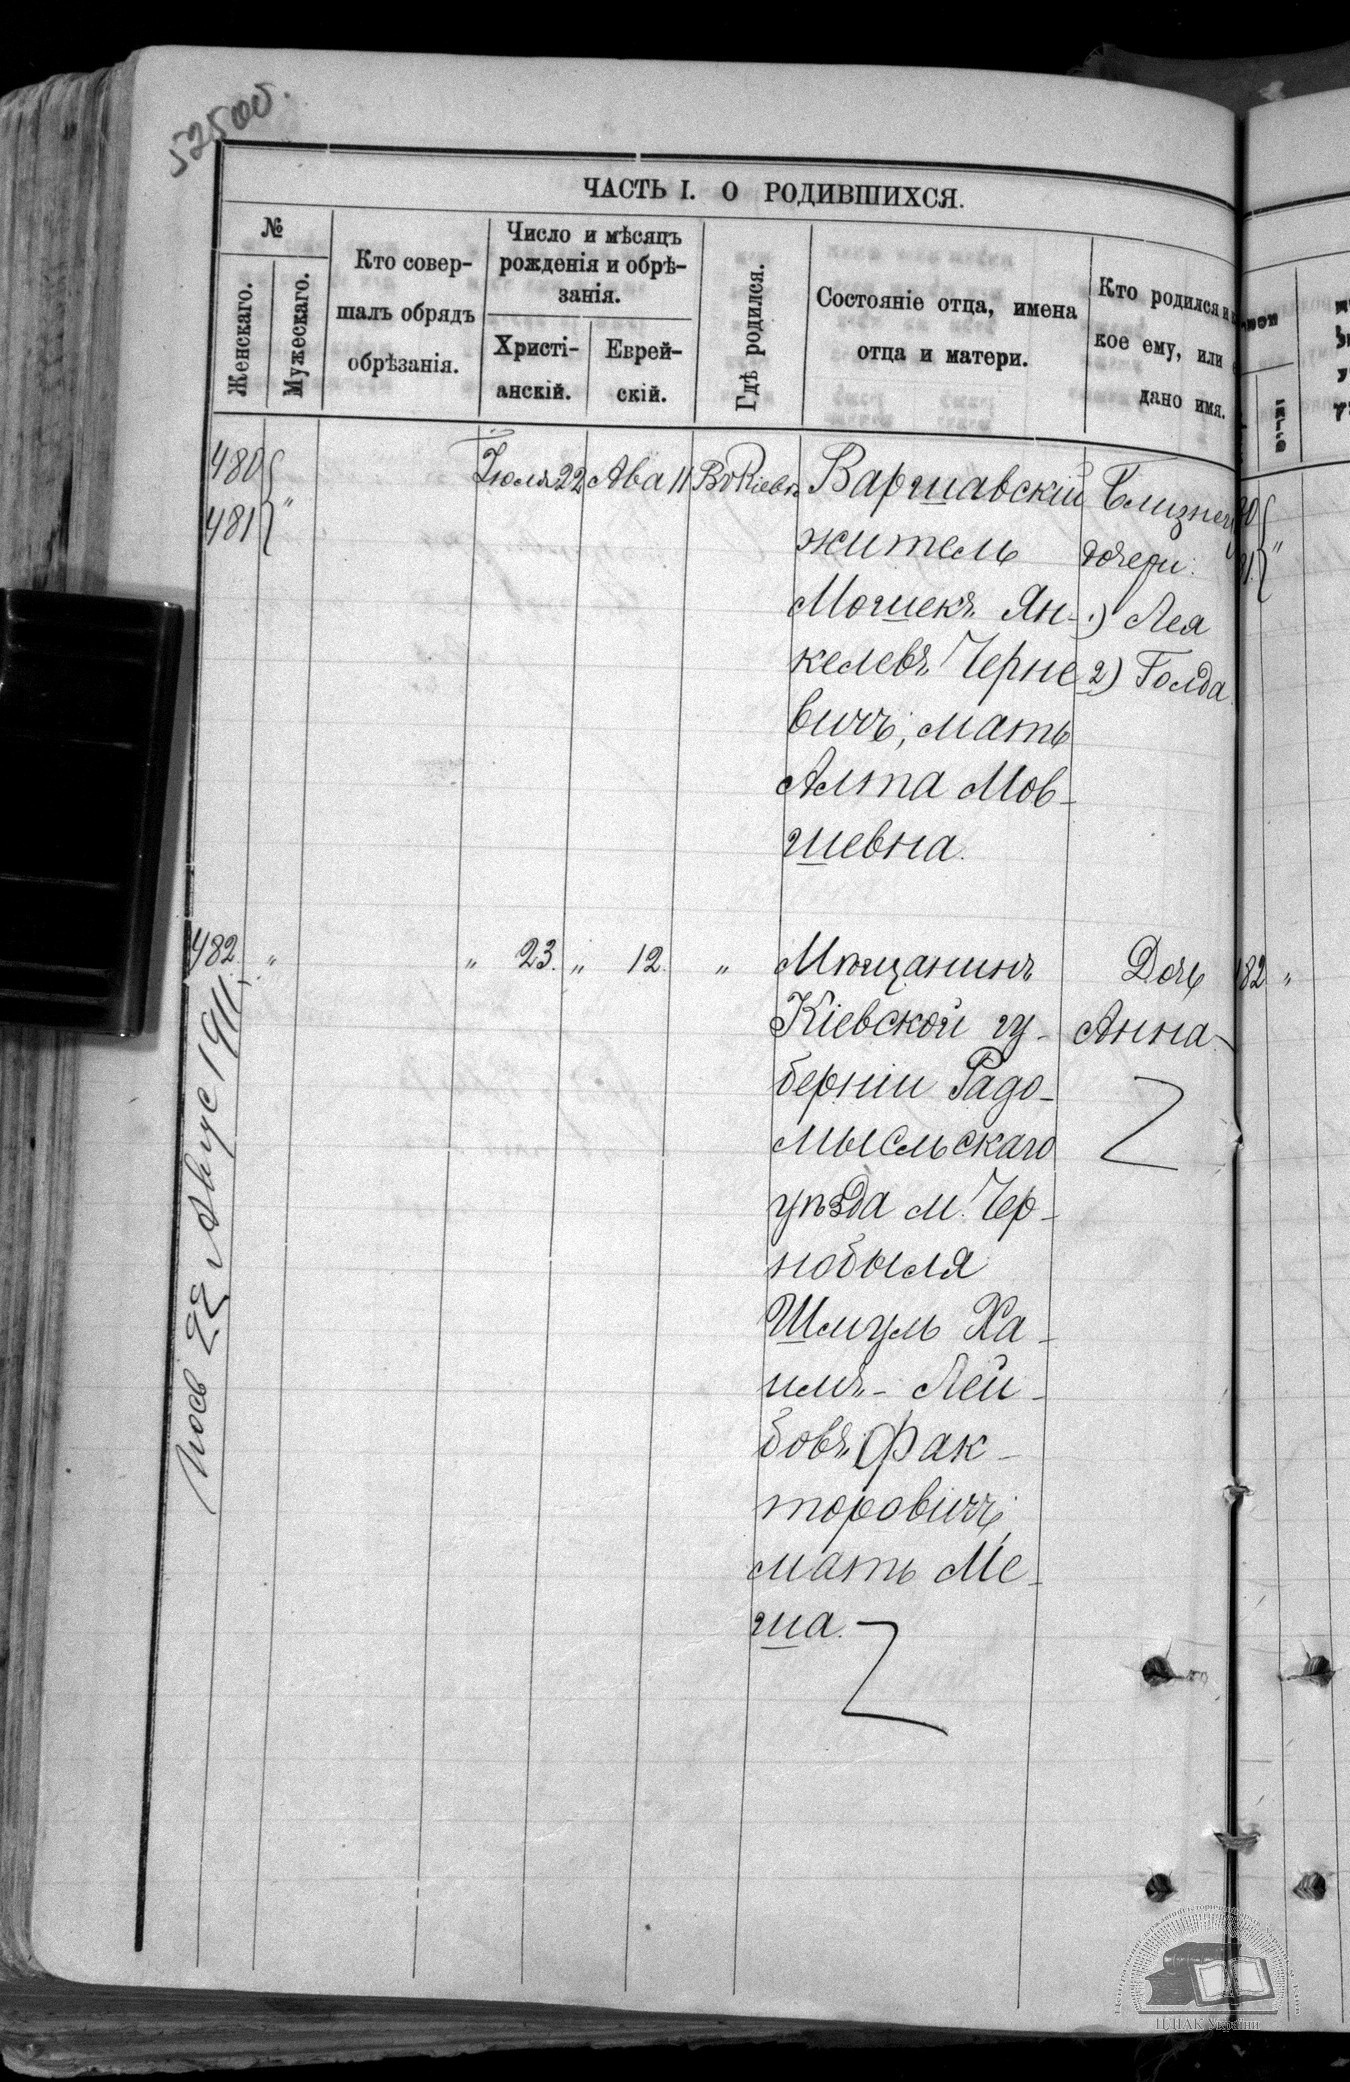 525об.
ЧАСТЬ I. О РОДИВШИХСЯ.
№
Женскаго.
Мужескаго.
Кто совер-
шалъ обрядъ
обрѣзанія.
Число и мѣсяцъ
рожденія и обрѣ-
занія.
Христі-
анскій.
Еврей-
скій.
Гдѣ родился.
Состояніе отца, имена
отца и матери.
Кто родился и
кое ему, или
дано имя.
480
481 "
Іюля 22 Ава 11 Въ Кіевѣ
Варшавскій
житель
Мошекъ Ян-
келевъ Черне
вичъ, мать
Алта Мов-
шевна.
Близнецы
дочери:
1) Лея
2) Голда
482. " " 23. " 12. "
Мѣщанинъ
Кіевской гу-
берніи Радо-
мысльскаго
уѣзда м. Чер-
нобыля
Шмуль Ха-
имъ-Лей-
бовъ Фак-
торовичъ,
мать Ме-
ша.
Дочь
Анна
22 Авгус 1911.
82 "
ЦДІАК України